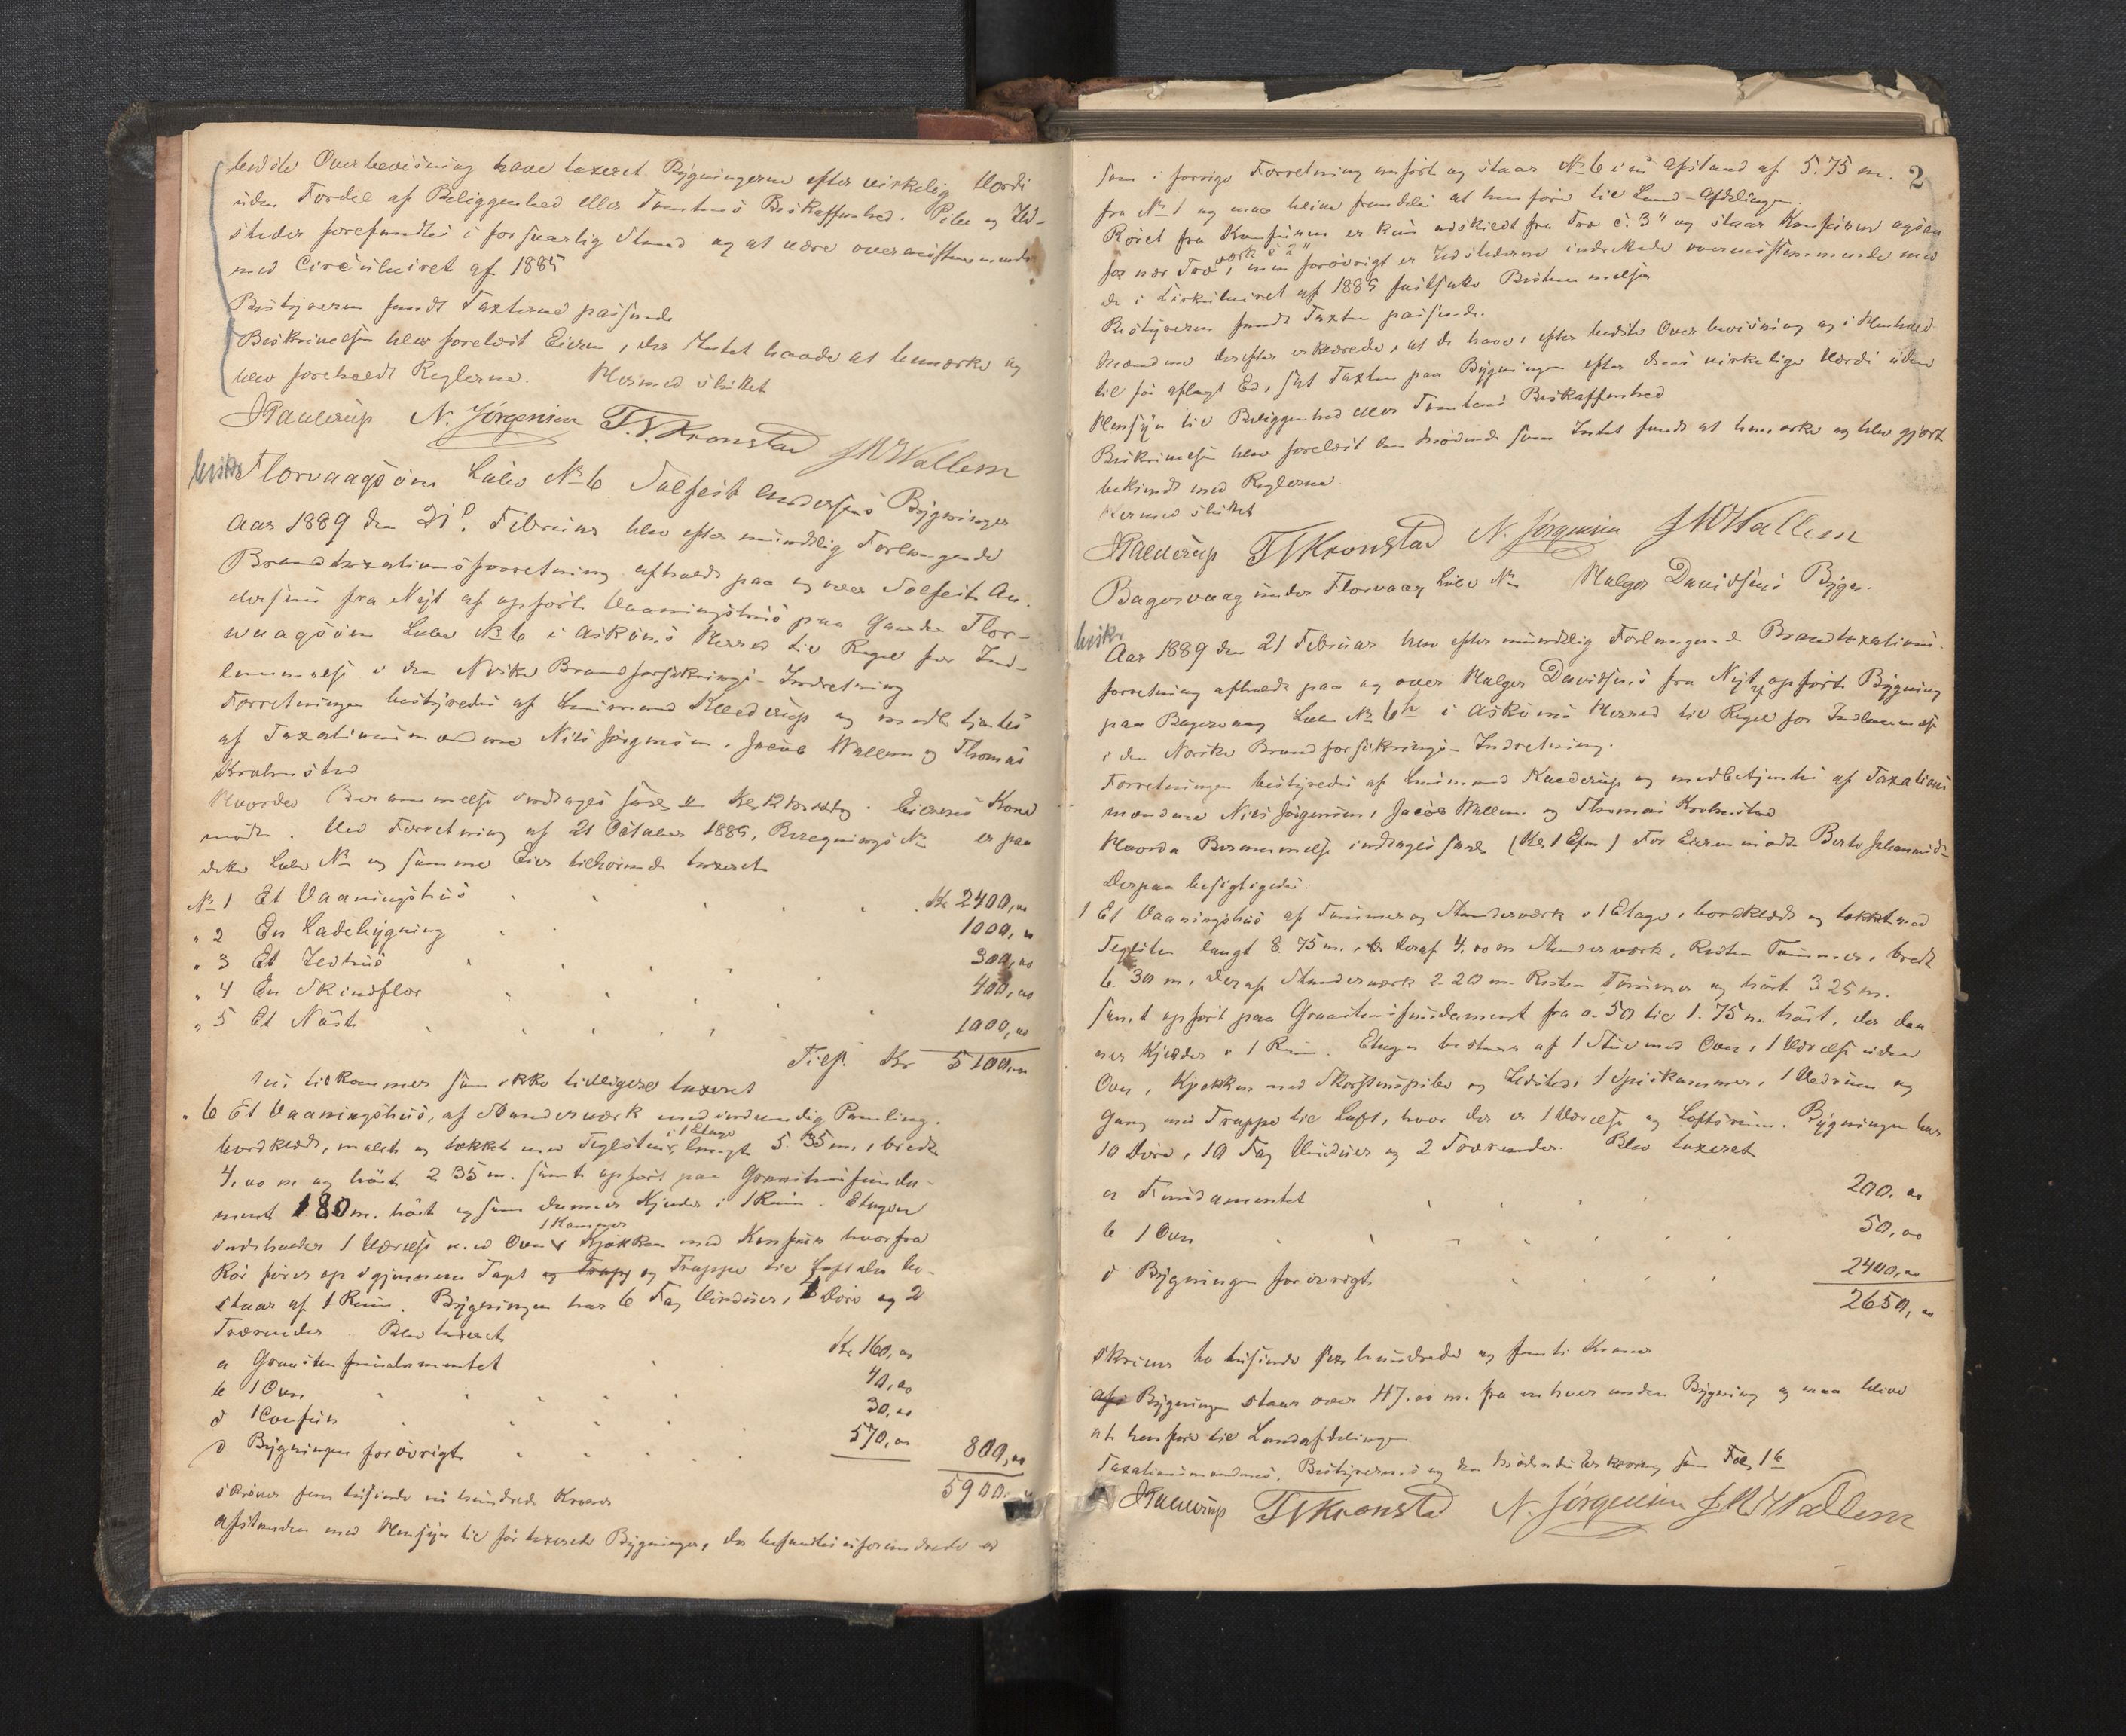 bedste Overbevisning have taxeret Bygningerne efter virkelig Værdi
uden Fordel af Beliggenhed eller Tomtens Beskaffenhed. Piber og Ild-
steder forefandtes i forsvarlig Stand og at være overensstemmende
med Circulairet af 1885
Bestyreren fandt Taxterne passende
Beskrivelsen blev forelæst Eieren, der Intet havde at bemærke og
blev foreholdt Reglerne. Hermed sluttet
N. Jörgensen T. S. Kronstad J W Wallem
Florvaagöen Löbe No 6 Tolfeit Andersens Bygninger
Aar 1889 den 21de Februar blev efter mundtlig Forlangende
Brandtaxationsforretning afholdt paa og over Tolfeit An-
dersens fra Nyt af opförte Vaaningshus paa Gaarden Flor-
vaagöen Löbe No 6 i Asköens Herred til Regel for Ind-
lemmelse i den Norske Brandforsikrings-Indretning
Forretningen bestyredes af Lensmand og medbetjentes
af Taxationsmændene Nils Jörgensen, Jacob Wallem og Thomas
Krohnstad
Hvorda Berammelse inddrages saal Eierens Kone
mödte. Ved Forretning af 21 October 1885, Beregnings No er paa
dette Löbe No og samme Eier tilhörende taxeret
No 1 Et Vaaningshus Kr 2400,00
" 2 En Ladebygning 1000,00
" 3 Et Ildhus 300,00
" 4 En Skindflor 400,00
" 5 Et Nöst 1000,00
Tils. Kr 5100,00
Nu tilkommer som ikke tidligere taxeret
" 6 Et Vaaningshus, af Stænderværk med indvendig Panling.
bordklædt, malet og tækket med Teglsten, i 1 Etage langt 5.35 m., bredt
4,00 m og höit 2 35 m. samt opfört paa Graastensfunda-
ment 1 80 m. höit og som danner Kjælder i 1 Rum. Etagen
indeholder 1 Værelse med Oven 1 Kammer Kjökken med Komfur hvorfra
Rör föres op igjennem Taget og Trappe til Loft der be-
staar af 1 Rum. Bygningen har 6 Fag Vinduer, Döre og 2
Tværender. Blev taxeret
a Graastensfundamentet Kr 160,00
b 1 Oven 40,00
c 1 Comfur 30,00
d Bygningen forövrigt 570,00 800,00
5900,00
skriver fem tusinde ni hundrede Kroner
Afstanden med Hensyn til för taxerede Bygninger, der befandtes uforandrede er
2
som i forrige Forretning anfört og staar No 6 i en Afstand af 5.75 m.
fra No 1 og maa blive fremdeles at henföre til Land-Afdelingen.
Röret fra Komfuren er kun adskiedt fra Træ c. 3" og staar Komfuren ogsaa
for nær Træværk c 2", men forövrigt er Ildstederne indrettede overensstemmende med
de i Cirkulairet af 1885 fastsatte Bestemmelser
Bestyreren fandt Taxten passende.
Mændene derefter erklærede, at de have, efter bedste Overbevisning og i Henhold
til för aflagt Ed, sat Taxten paa Bygningen efter dens virkelige Værdi uden
Hensyn til Beliggenhed eller Tomtens Beskaffenhed
Beskrivelsen blev forelæst den Mödende som Intet fandt at bemærke og blev gjort
bekjendt med Reglerne.
Hermed sluttet
T S Kronstad N. Jörgensen J W Wallem
Bagervaag under Florvaag Löbe No Holger Davidsens Bygn.
Aar 1889 den 21 Februar blev efter mundtlig Forlangende Brandtaxations-
forretning afholdt paa og over Holger Davidsens fra Nyt af opförte Bygning
paa Bagervaag Löbe No 6 i Asköens Herred til Regel for Indlemmelse
i den Norske Brandforsikrings-Indretning.
Forretningen bestyredes af Lensmand og medbetjentes af Taxations
mændene Nils Jörgensen, Jacob Wallem og Thomas Krohnstad
Hvorda Berammelse inddrages saal (Kl 1 Efm) For Eieren mödte Berte Johannesd-
Derpaa besigtigedes:
1 Et Vaaningshus af Tömmer og Stænderværk i 1 Etage, bordklædt og tækket med
Teglsten langt 8.75 m., deraf 4.00 m Stænderværk, Resten Tömmer, bredt
6.30 m, deraf Stænderværk 2.20 m Resten Tömmer og höit 3 25 m.
samt opfört paa Graastensfundament fra 0.50 til 1.75 m. höit, der dan-
ner Kjælder i 1 Rum. Etagen bestaar af 1 Stue med Oven, 1 Værelse uden
Oven, Kjökken med Skorstenspibe og Ildsted, 1 Spiskammer, 1 Vedrum og
Gang med Trappe til Loft, hvor der er 1 Værelse og Loftsrum. Bygningen har
10 Döre, 10 Fag Vinduer og 2 Tværender. Blev taxeret
a Fundamentet 200.00
b 1 Oven 50,00
c Bygningen forövrigt 2400,00
2650,00
skriver to tusinde sex hundrede og femti Kroner
Bygningen staar over 47.00 m. fra enhver anden Bygning og maa blive
at henföre til Landafdelingen
Taxationsmændenes, Bestyrerens og den Mödendes Erklæring som Fol. 1 b
T S Kronstad N. Jörgensen J W Wallem